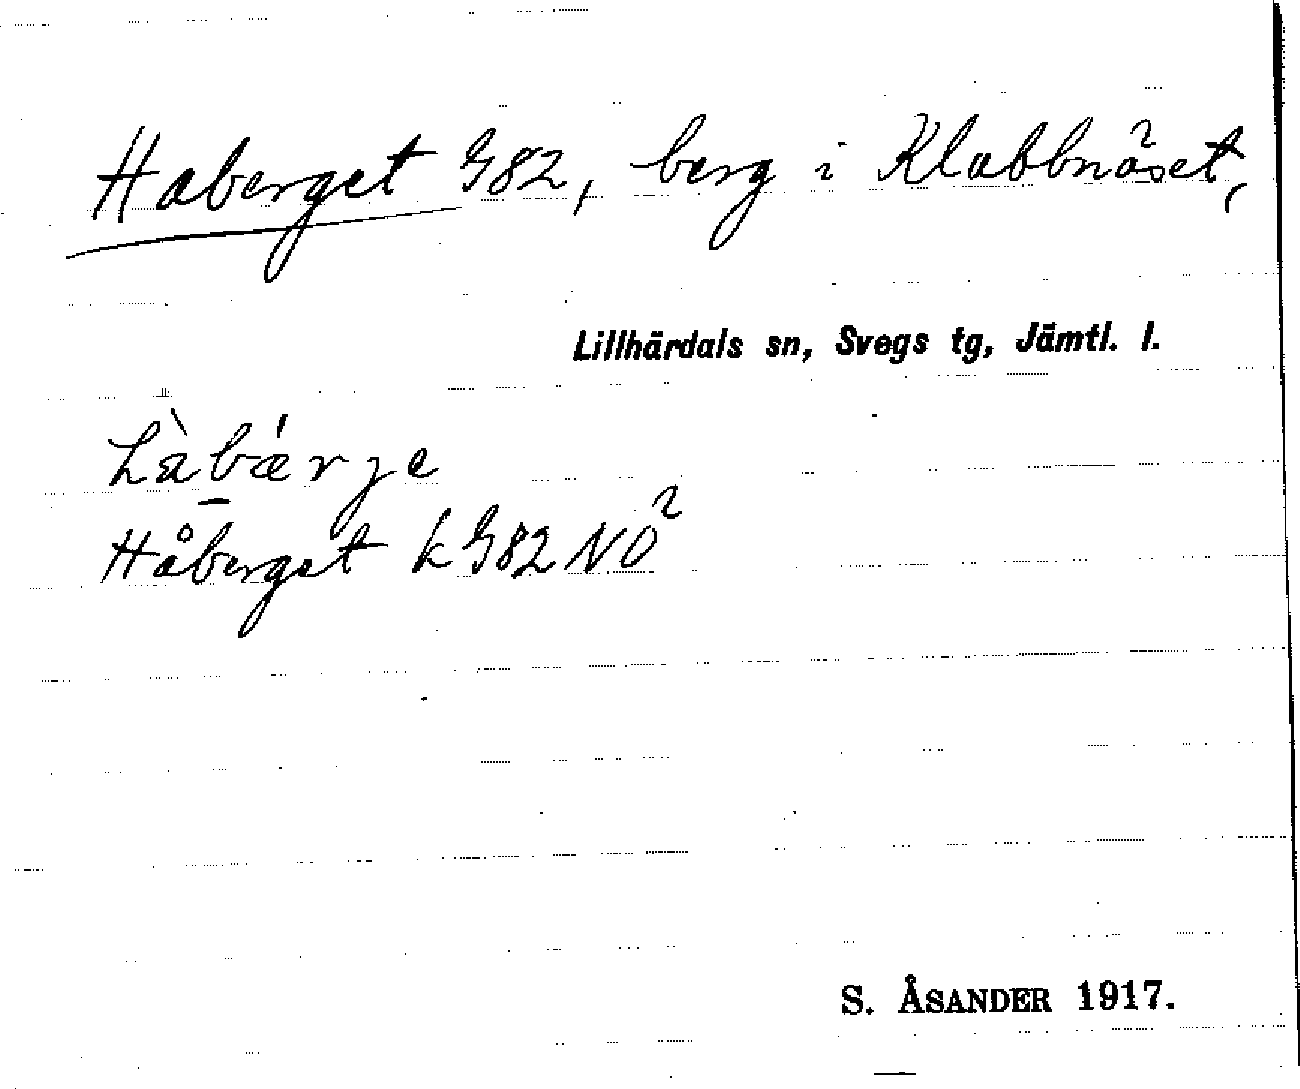 Haberget G82, berg i Klabbnäset,
Lillhärdals sn, Svegs tg, Jämtl. l.
Håberget k G82 NÖ
S. ÅSANDER 1917.